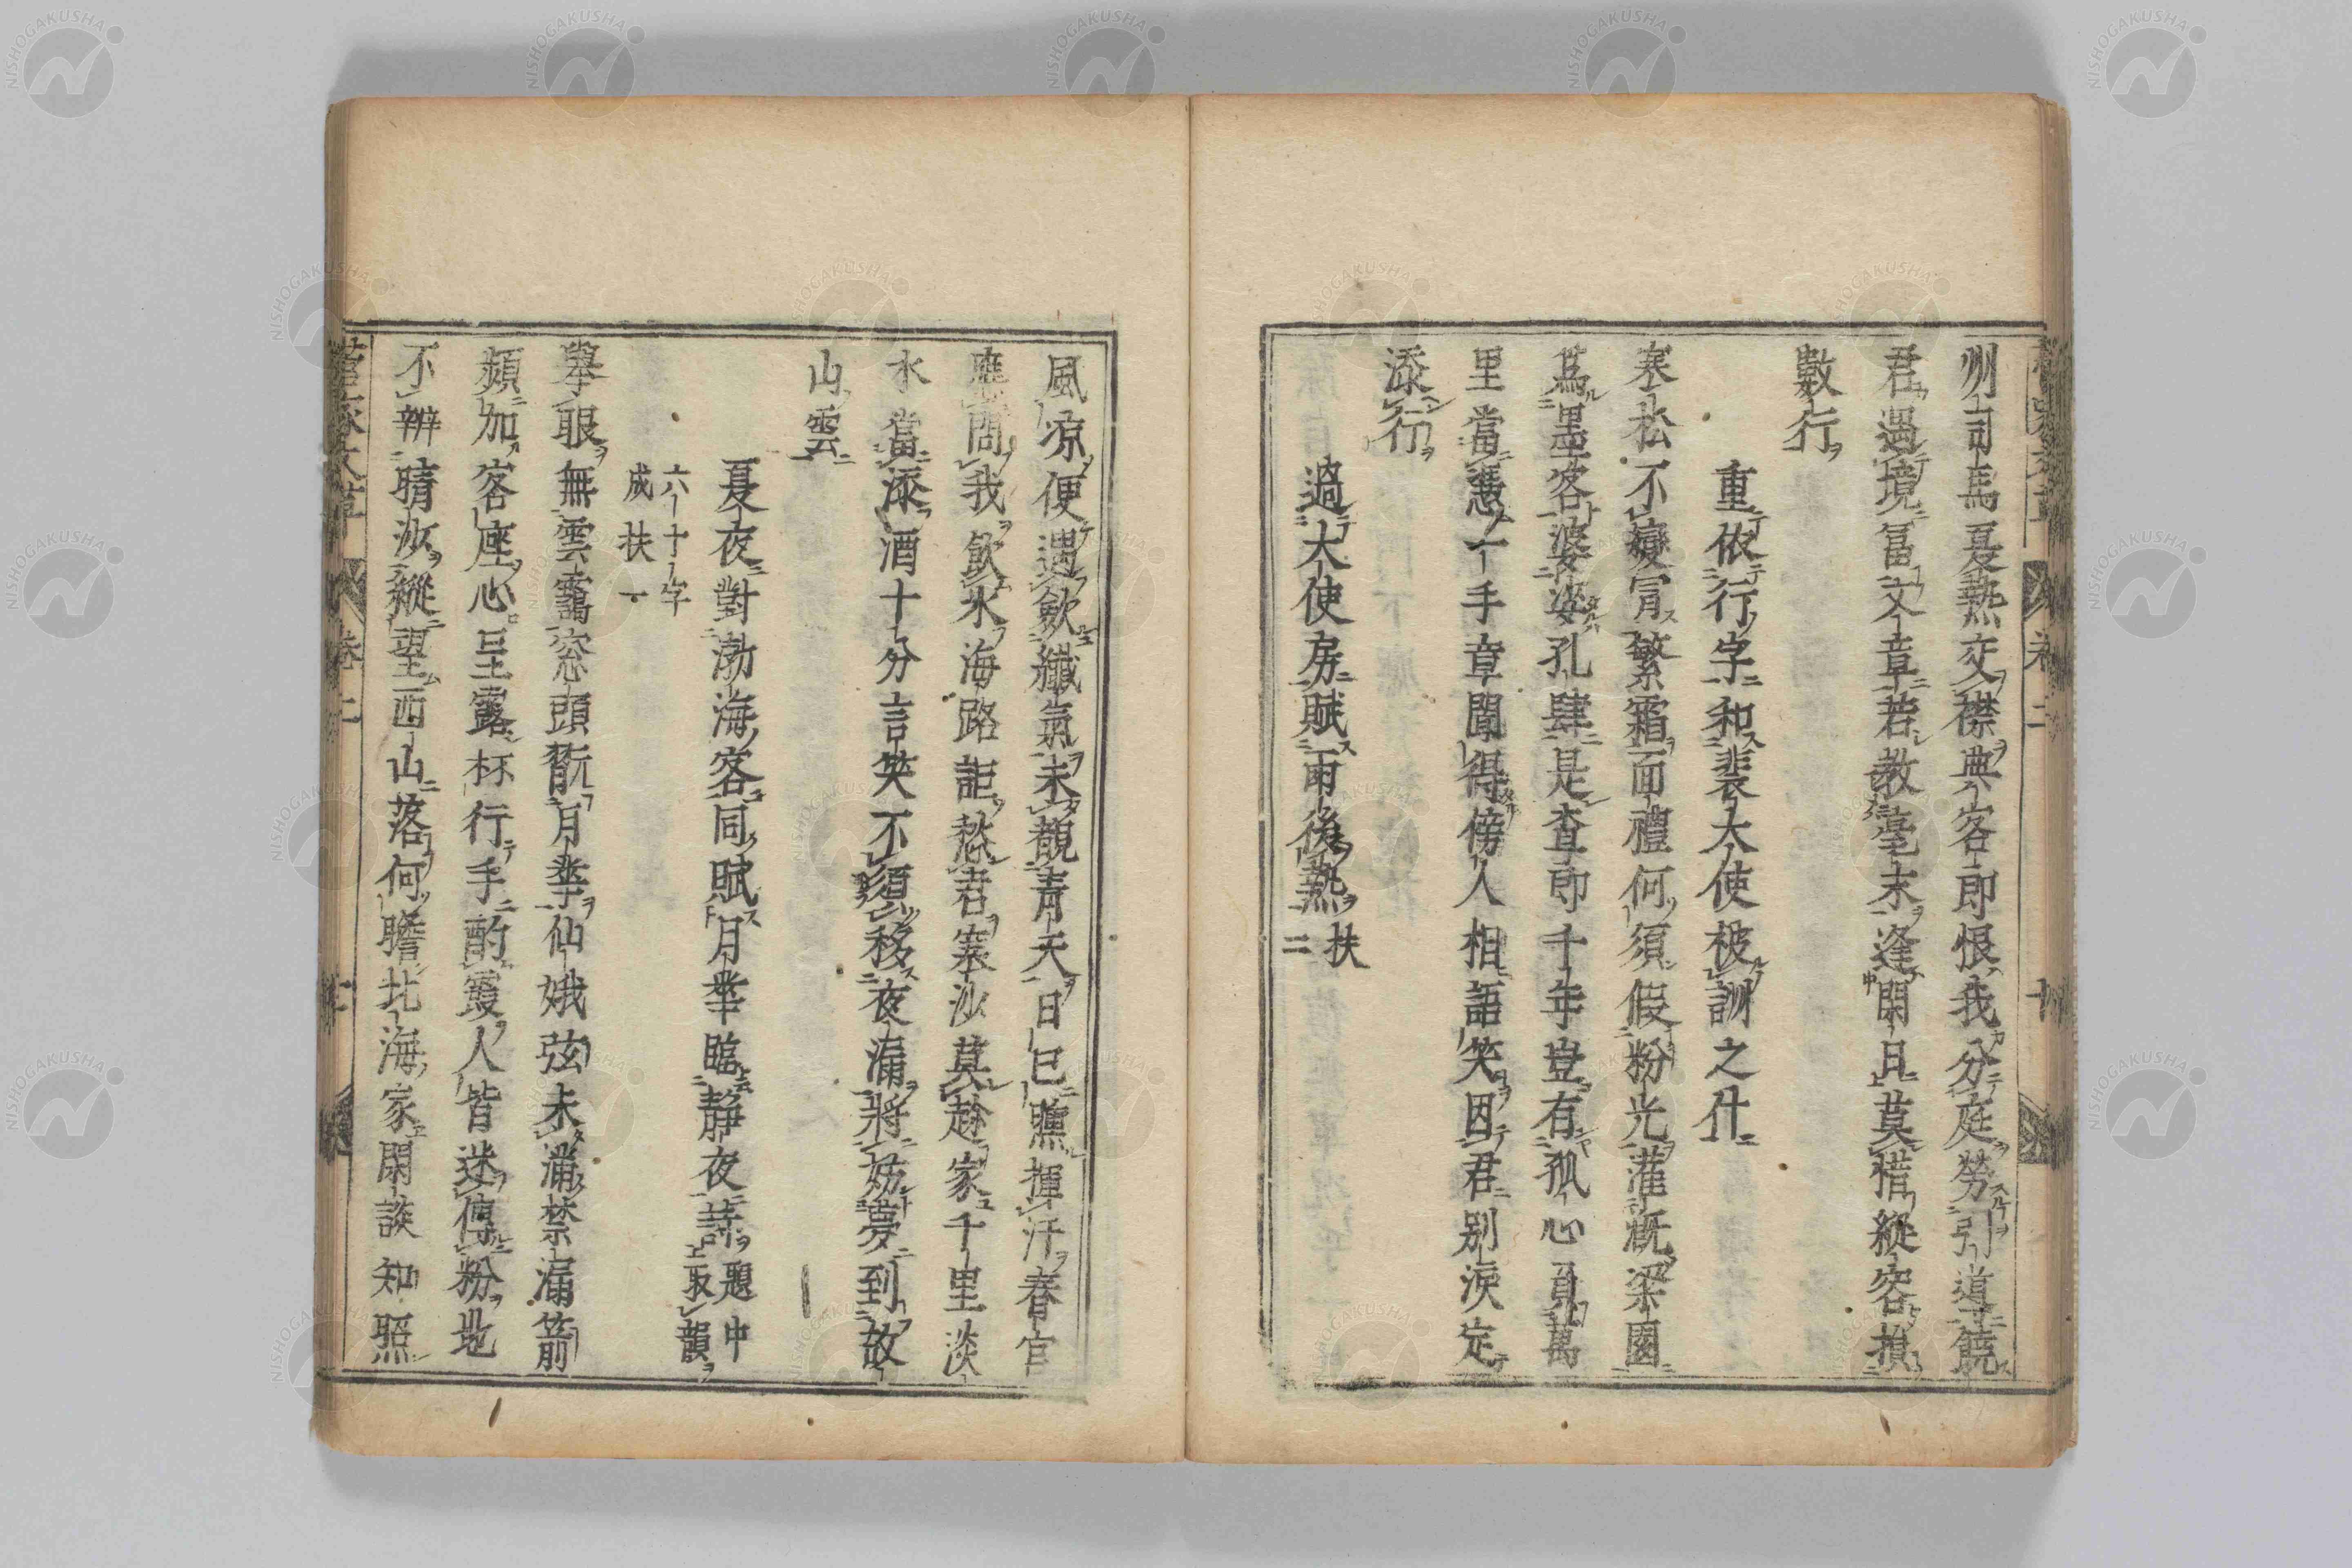 州司馬夏熱交襟典客即恨我分庭勞引導饒
君過境富文章若教毫末逢閑日莫惜縱容損
數行
重依行字和裴大使被訓之什
寒松不變冒繁霜面禮何須假粉光灌漑梁園
爲墨客婆娑孔肆是查郎千年豈有孤心負萬
里當憑一手章聞得傍人相語笑因君別淚定
添行
過大使房賦雨後熱 扶
二
風凉便遇歛纖氣未覩青天日已曛揮汗春官
應問我飲氷海路詎愁君寒沙莫趁家千里淡
水當添酒十分言笑不須移夜漏將妨夢到故
山雲
夏夜對渤海客同賦月華臨靜夜詩 題中
取韻
六十字
成 扶一
擧眼無雲靄窓頭翫月華仙娥弦未滿禁漏箭
頻加客座心呈露杯行手酌霞人皆迷傅粉地
不辨晴沙縱望西山落何瞻北海家閑談知照
菅家文草 卷二
NISHOGAKUSHA